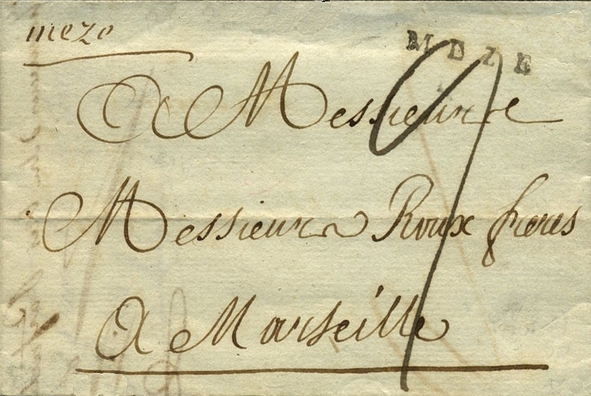 meze
MEZE
A Messieurs
Messieurs Roux freres
A Marseille